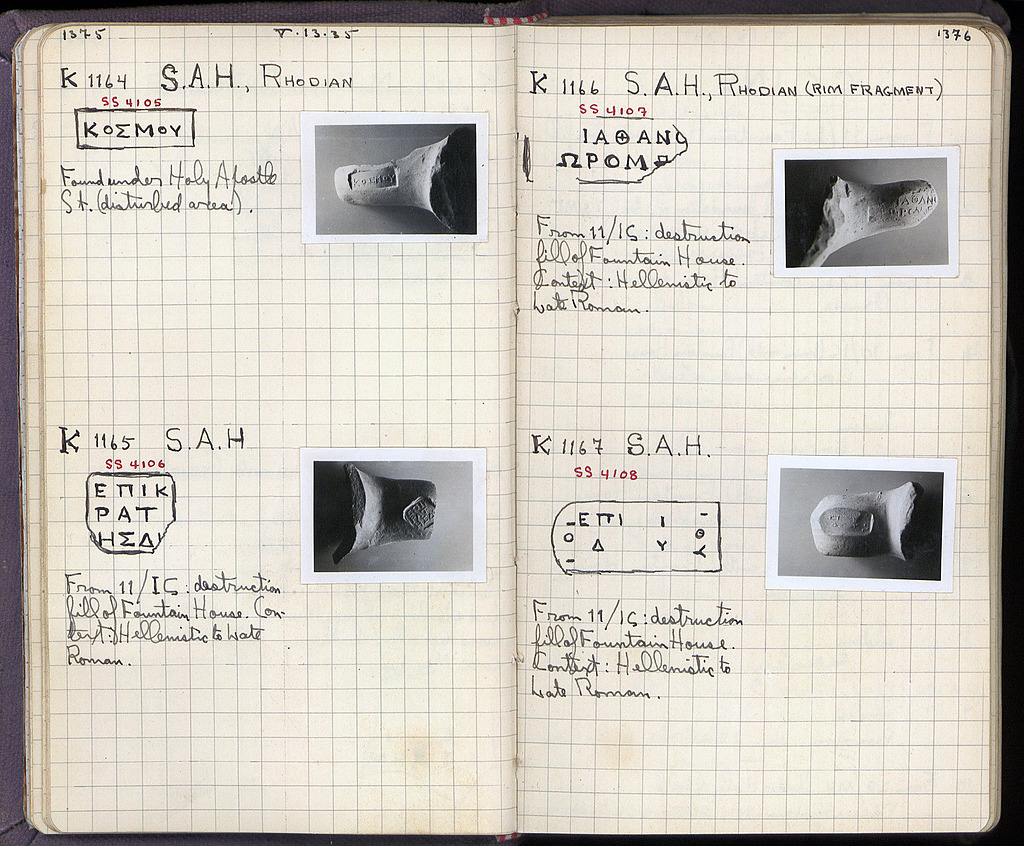 1375 V·13·35
K 1164 S.A.H., RHODIAN
SS 4105
ΚΟΣΜΟΥ
Found under Holy Apostle
St. (disturbed area).
K 1165 S.A.H
SS 4106
ΕΠΙΚ
ΡΑΤ
ΗΣΔΙ
From 11/ΙϚ: destruction
fill of Fountain House. Con-
text: Hellenistic to Late
Roman.
1376
K 1166 S.A.H., RHODIAN (RIM FRAGMENT)
SS 4107
ΙΑΘΑΝΟ
ΩΡΟΜ
From 11/ΙϚ: destruction
fill of Fountain House.
Context: Hellenistic to
Late Roman.
K 1167 S.A.H.
SS 4108
ΕΠΙ Ι
Ο Δ Υ Θ Υ
From 11/ΙϚ: destruction
fill of Fountain House.
Context: Hellenistic to
Late Roman.